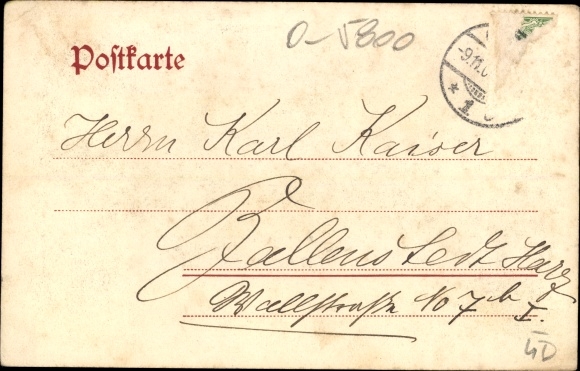 O-5800
Postkarte
-9.11.0
* 1
Herrn Karl Kaiser
Ballenstedt Harz
Wallstraße No 7 b
I.
40